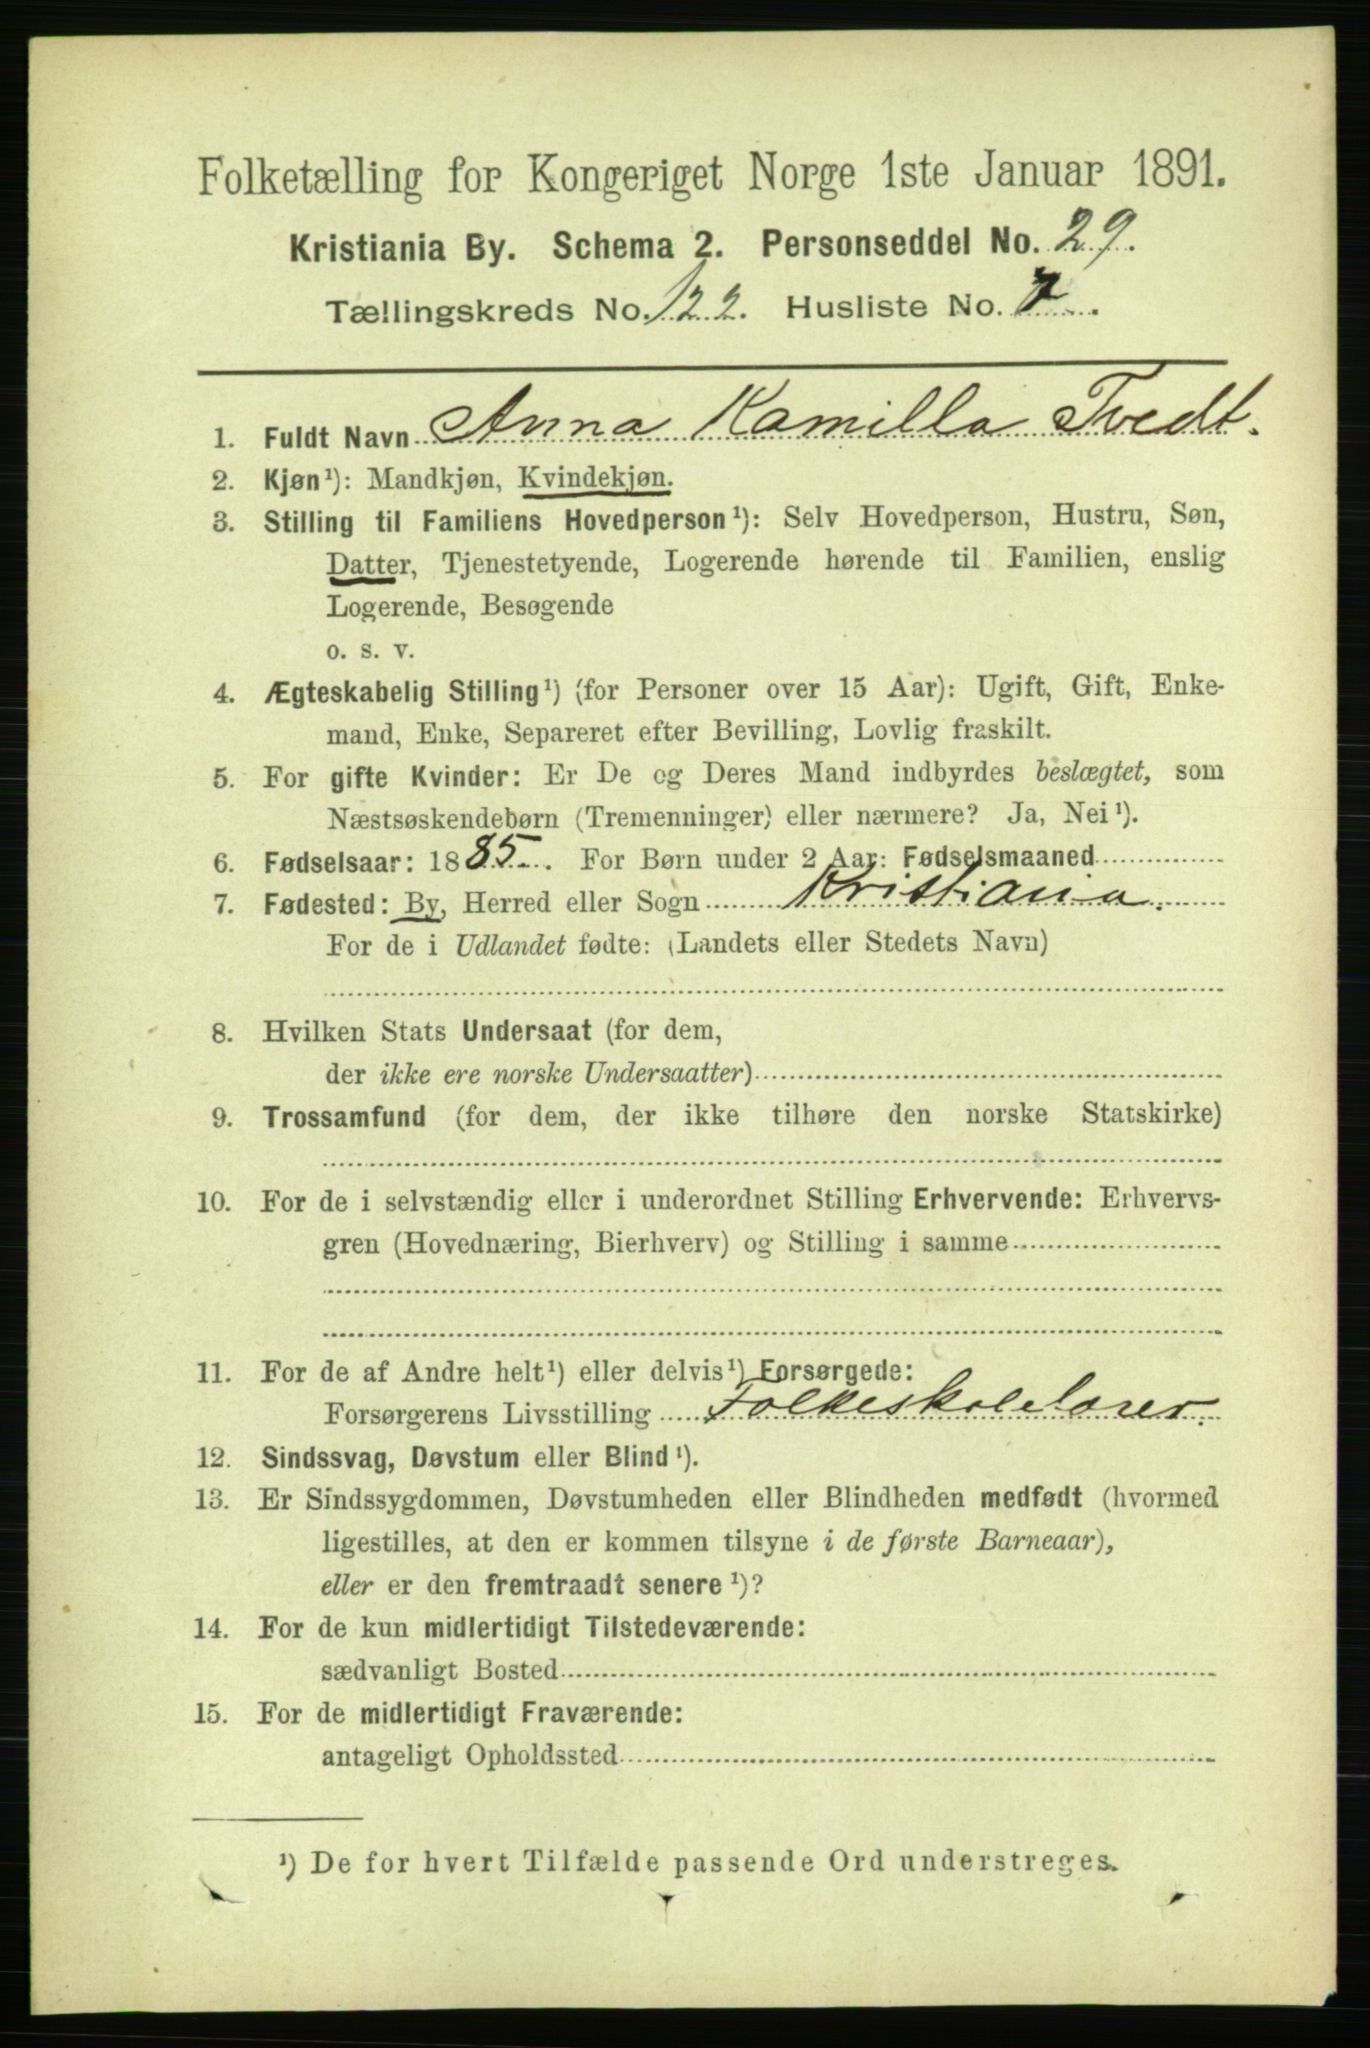 Folketælling for Kongeriget Norge 1ste Januar 1891.
Kristiania By. Schema 2. Personseddel No. 29.
Tællingskreds No. 122. Husliste No. 7.
1. Fuldt Navn Anna Kamilla Tvedt.
2. Kjøn¹): Mandkjøn, Kvindekjøn.
3. Stilling til Familiens Hovedperson¹): Selv Hovedperson, Hustru, Søn,
Datter, Tjenestetyende, Logerende hørende til Familien, enslig
Logerende, Besøgende
o. s. v.
4. Ægteskabelig Stilling¹) (for Personer over 15 Aar): Ugift, Gift, Enke-
mand, Enke, Separeret efter Bevilling, Lovlig fraskilt.
5. For gifte Kvinder: Er De og Deres Mand indbyrdes beslægtet, som
Næstsøskendebørn (Tremenninger) eller nærmere? Ja, Nei¹).
6. Fødselsaar: 1885. For Børn under 2 Aar: Fødselsmaaned
7. Fødested: By, Herred eller Sogn Kristiania.
For de i Udlandet fødte: (Landets eller Stedets Navn)
8. Hvilken Stats Undersaat (for dem,
der ikke ere norske Undersaatter)
9. Trossamfund (for dem, der ikke tilhøre den norske Statskirke)
10. For de i selvstændig eller i underordnet Stilling Erhvervende: Erhvervs-
gren (Hovednæring, Bierhverv) og Stilling i samme
11. For de af Andre helt¹) eller delvis¹) Forsørgede:
Forsørgerens Livsstilling Folkeskolelærer.
12. Sindssvag, Døvstum eller Blind¹).
13. Er Sindssygdommen, Døvstumheden eller Blindheden medfødt (hvormed
ligestilles, at den er kommen tilsyne i de første Barneaar),
eller er den fremtraadt senere¹)?
14. For de kun midlertidigt Tilstedeværende:
sædvanligt Bosted
15. For de midlertidigt Fraværende:
antageligt Opholdssted
¹) De for hvert Tilfælde passende Ord understreges.